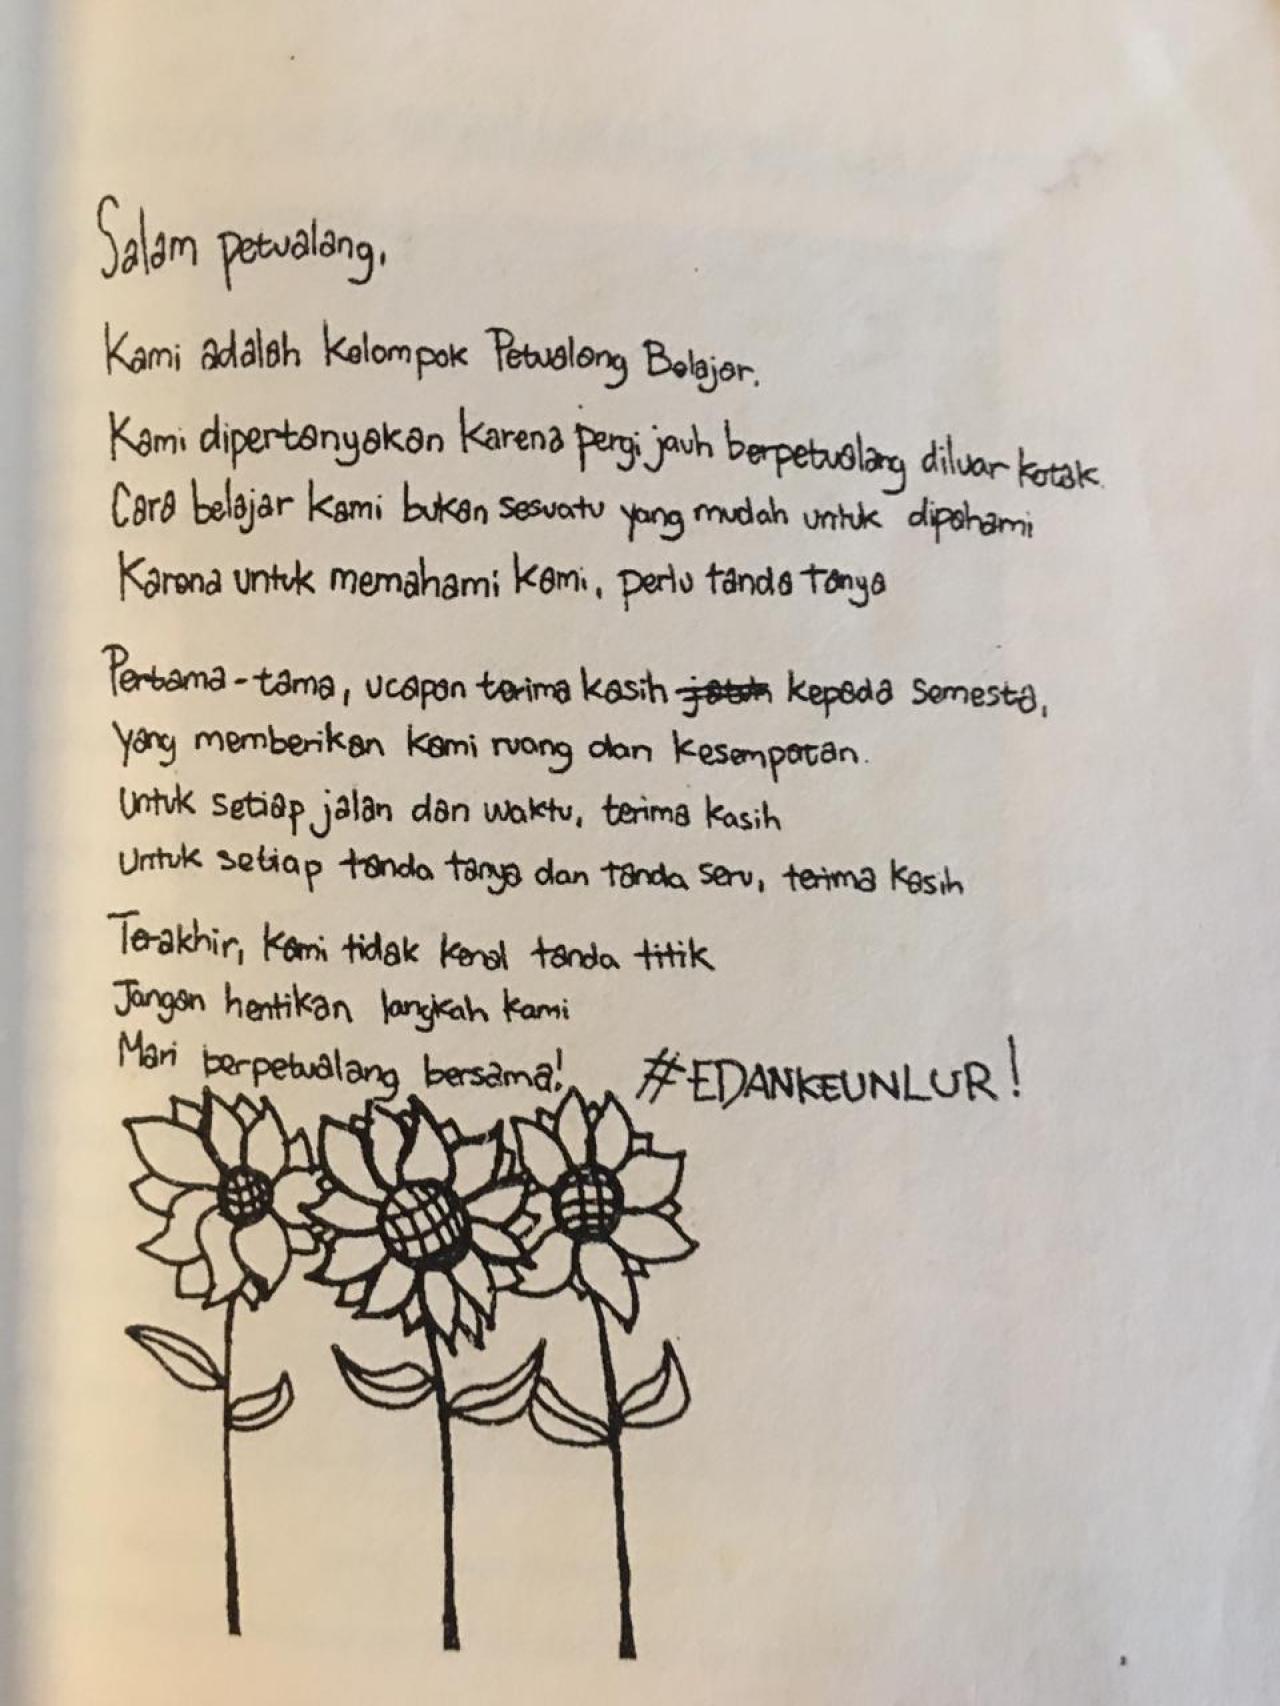 Salam petualang,
Kami adalah kelompok Petualang Belajar.
Kami dipertanyakan karena pergi jauh berpetualang diluar kotak.
Cara belajar kami bukan sesuatu yang mudah untuk dipahami
Karena untuk memahami kami, perlu tanda tanya
Pertama-tama, ucapan terima kasih kepada semesta,
yang memberikan kami ruang dan kesempatan.
Untuk setiap jalan dan waktu, terima kasih
Untuk setiap tanda tanya dan tanda seru, terima kasih
Terakhir, kami tidak kenal tanda titik
Jangan hentikan langkah kami
Mari berpetualang bersama! #EDANKEUNLUR!